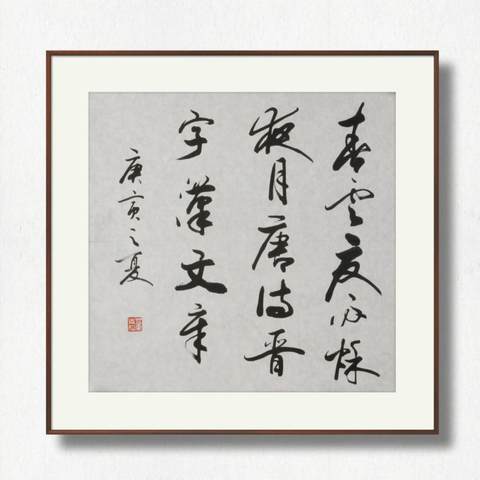 春雲夏雨秋
夜月唐詩晋
字漢文章
庚寅之夏